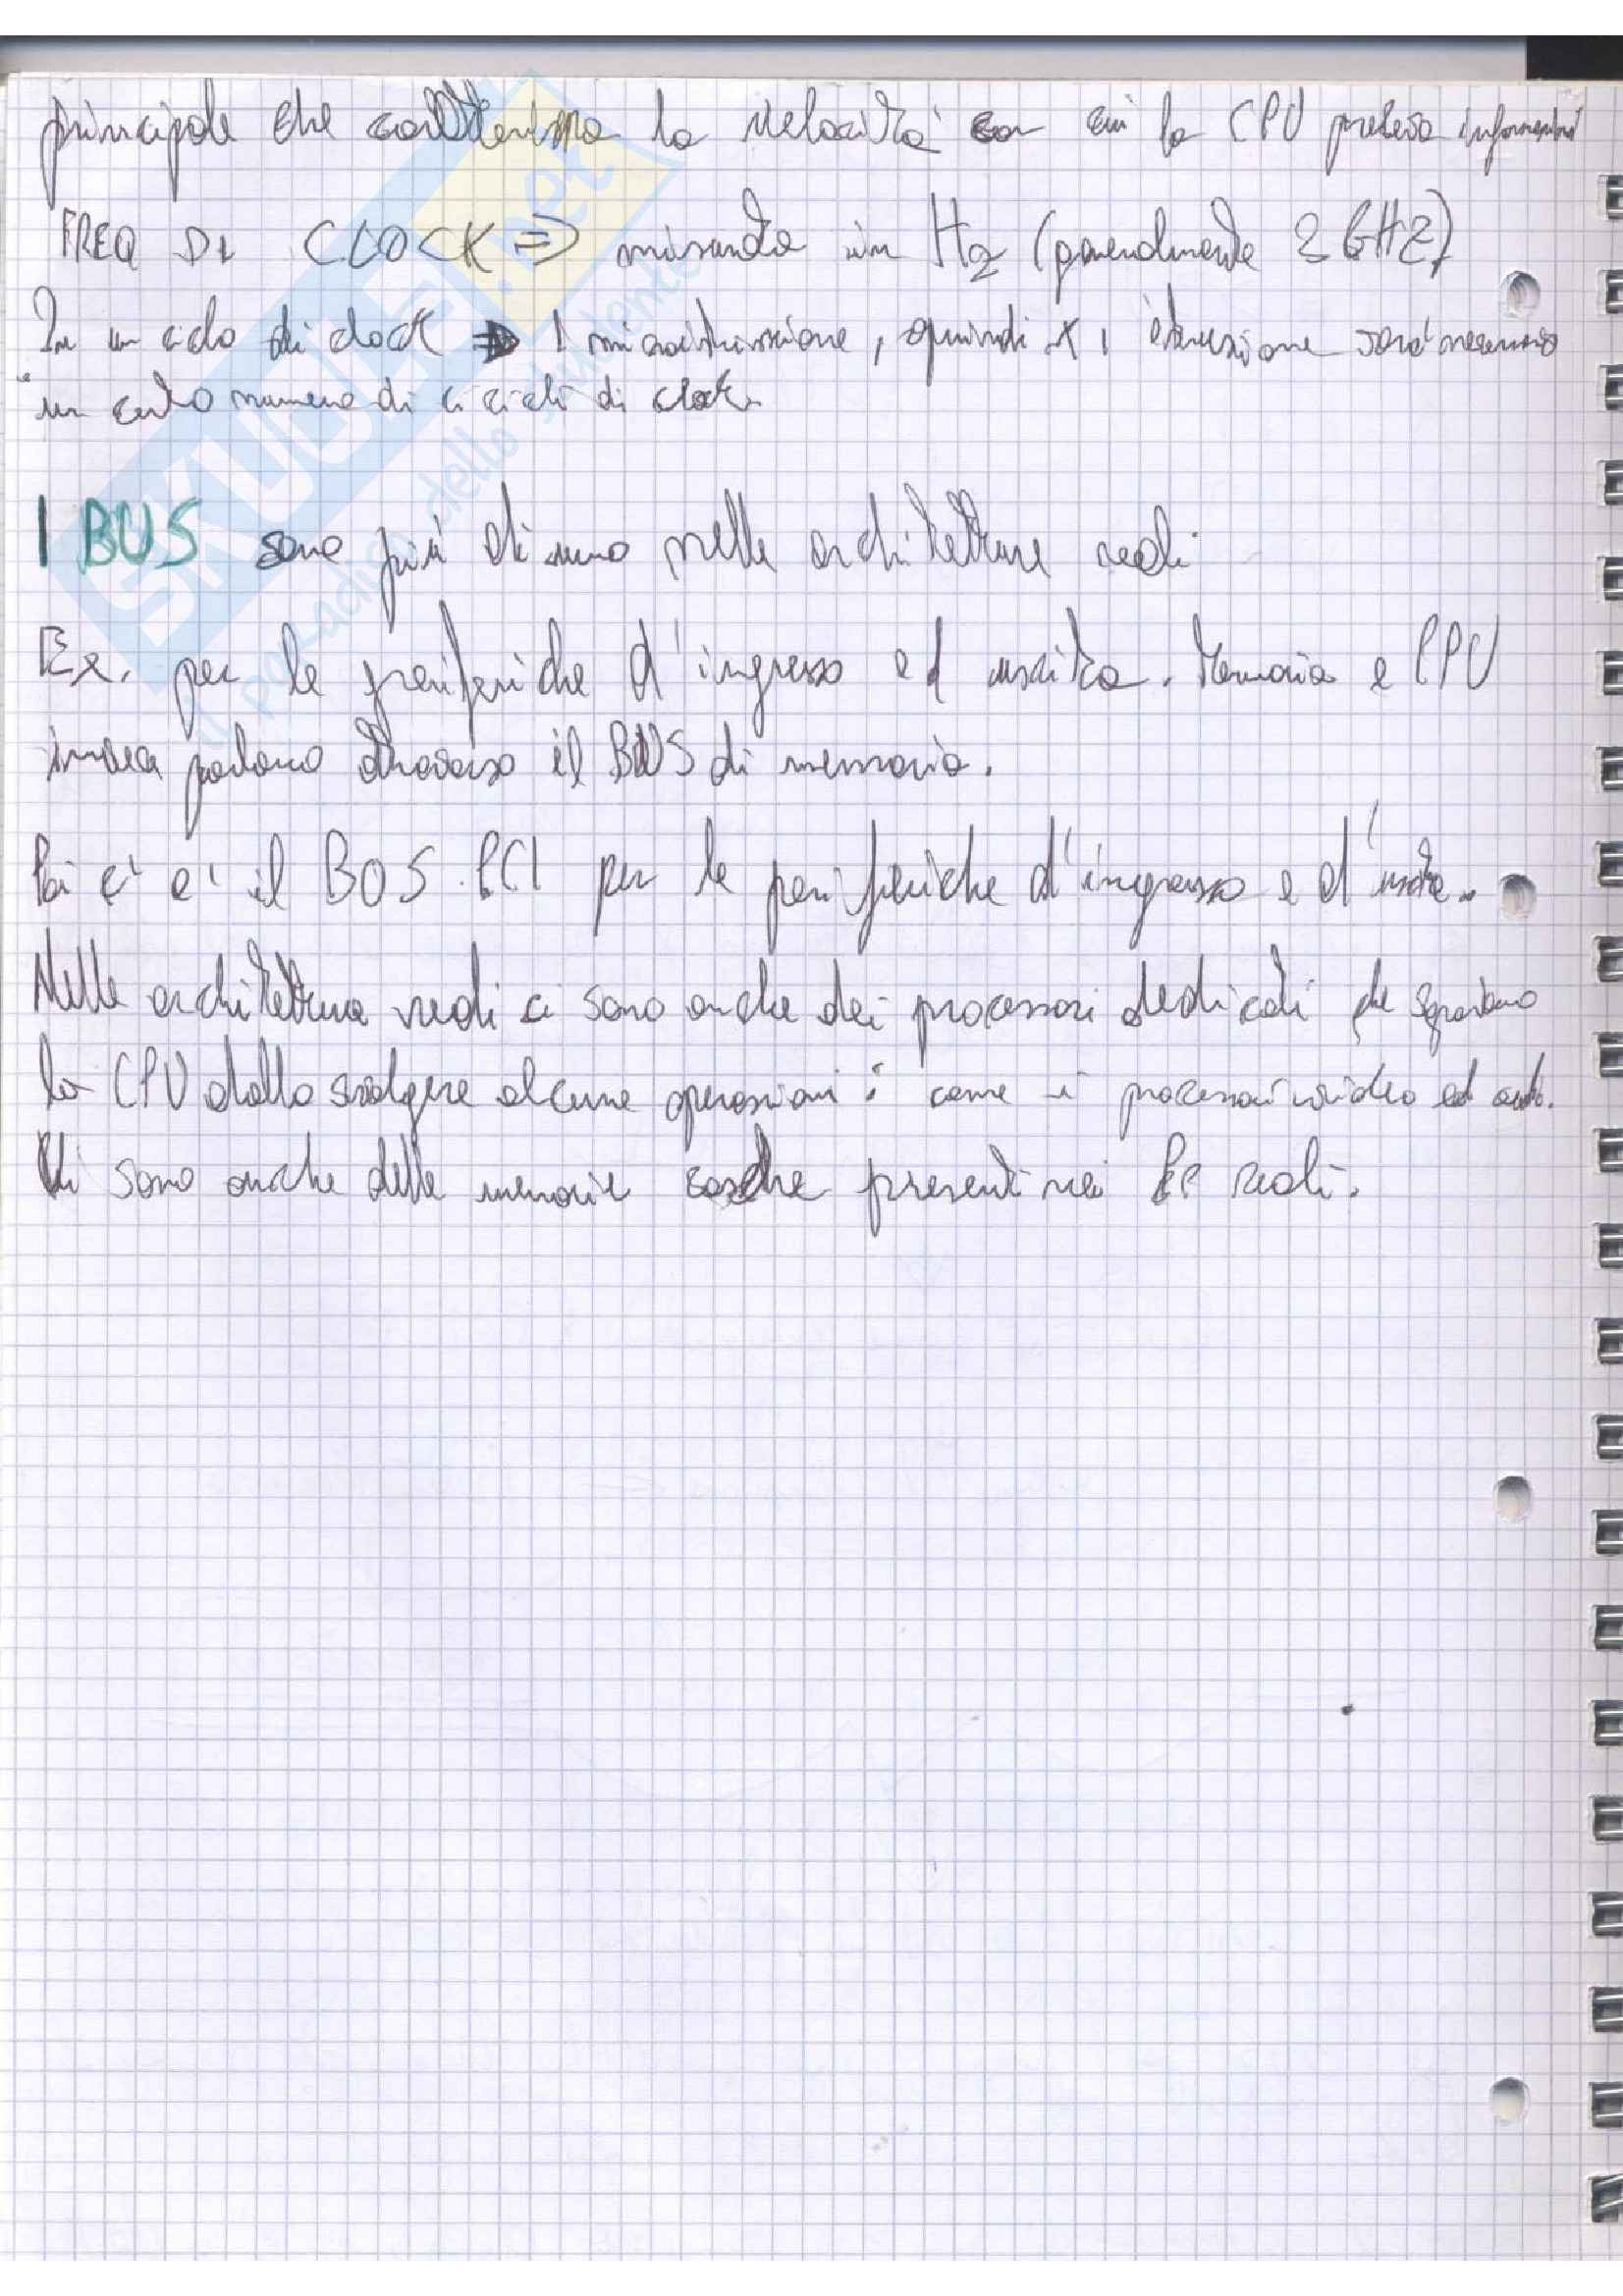 principale che caratterizza la velocità con cui la CPU preleva informazioni
FREQ DI CLOCK => misurata in Hz (generalmente 2 GHZ)
In un ciclo di clock => 1 microistruzione, quindi x 1 istruzione sarà necessario
un certo numero di cicli di clock
I BUS sono più di uno nelle architetture reali
Ex. per le periferiche d'ingresso ed uscita. Memoria e CPU
invece parlano attraverso il BUS di memoria.
Poi c'è il BUS PCI per le periferiche d'ingresso e d'uscita.
Nelle architetture reali ci sono anche dei processori dedicati che sgravano
la CPU dallo svolgere alcune operazioni: come i processori video ed audio.
Vi sono anche delle memorie cache presenti nei PC reali.
SKUOLA.net
il paradiso dello studente